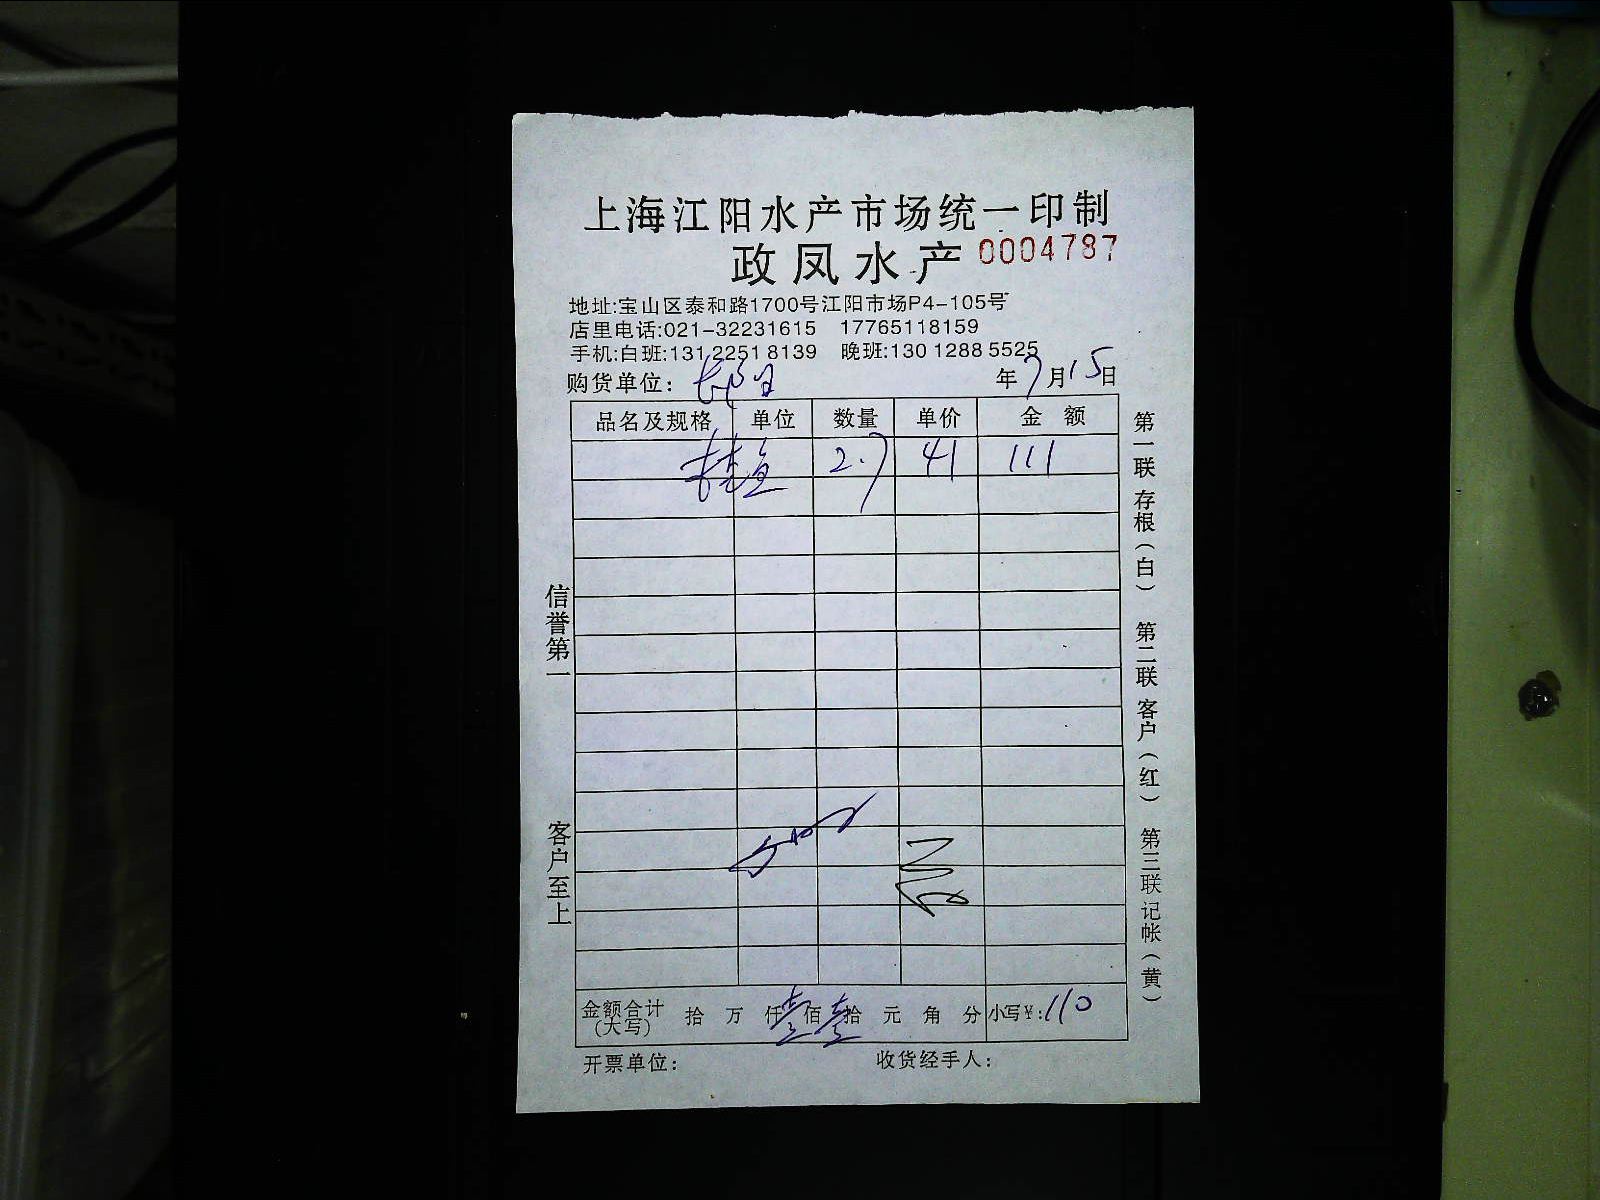 上海江阳水产市场统一印制
政凤水产 0004787
地址:宝山区泰和路1700号江阳市场P4-105号
店里电话:021-32231615 17765118159
手机:白班:131 2251 8139 晚班:130 1288 5525
购货单位: 年7月15日
品名及规格 单位 数量 单价 金额
桂鱼 2.7 41 111
金额合计(大写) 拾 万 仟壹佰壹拾 元 角 分 小写¥:110
开票单位: 收货经手人:
信誉第一 客户至上
第一联 存根(白) 第二联 客户(红) 第三联 记帐(黄)